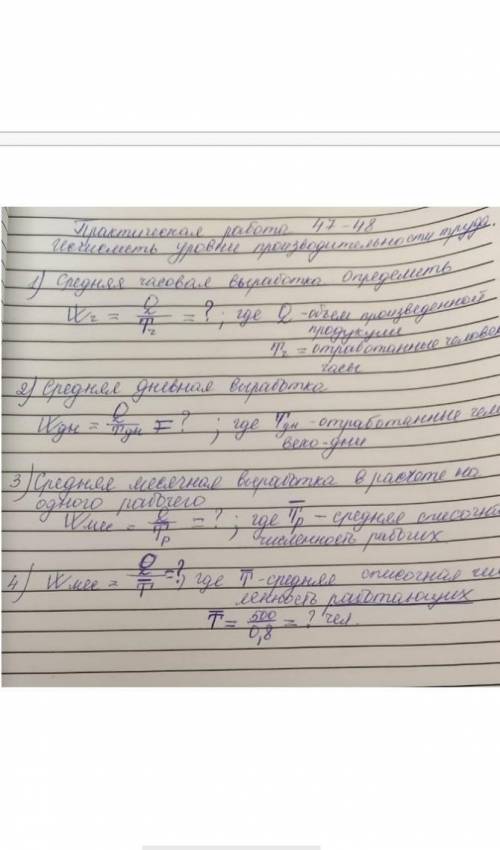 Практическая работа 47-48
Исчислить уровни производительности труда.
1) Средняя часовая выработка. Определить
Wг = Q/Tг = ?; где Q - объем произведенной
продукции
Tг = отработанные человеко
часы
2) Средняя дневная выработка
Wдн = Q/Tдн = ?; где Tдн - отработанные чело
веко-дни
3) Средняя месячная выработка в расчете на
одного рабочего
Wмес = Q/T̅р = ?; где T̅р - средняя списочна
численность рабочих
4) Wмес = Q/T̅ = ?, где T̅ - средняя списочная чис
ленность работающих
T̅ = 500/0,8 = ? чел.